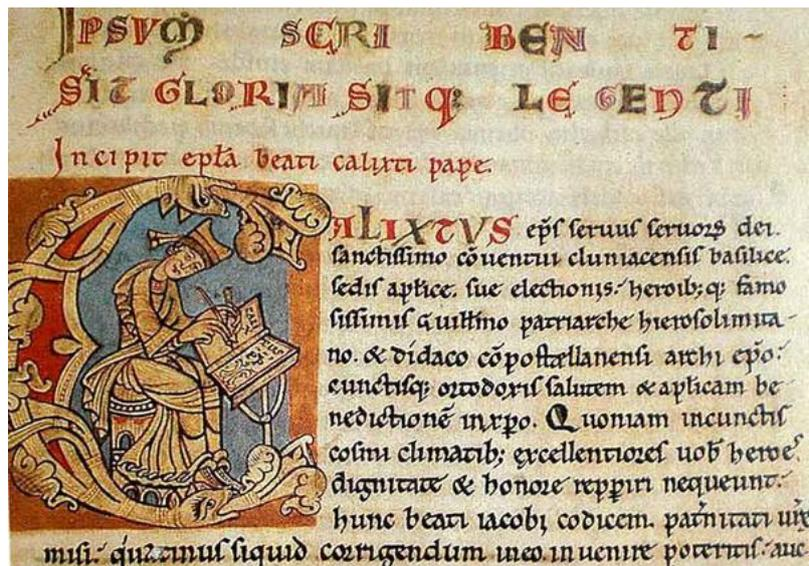 IPSVM SCRI BEN TI
SIT GLORIA SITQ: LE GENTI
Incipit epła beati calixti pape.
CALIXTVS ep̄s seruus seruorꝝ dei.
sanctissimo cōuentui cluniacensis basilice.
sedis aplice. sue electionis. heroib; q; famo
sissimis Guillmo patriarche hierosolimita-
no. & didaco cōpostellanensi archi ep̄o.
cunctisq; ortodoxis salutem & aplicam be-
nedictionē inxp̄o. Quoniam incunctis
cosmi climatib; excellentiores uob heroes
dignitate & honore repperiri nequeunt.
hunc beati iacobi codicem. pat̄nitati ur̄e
misi. quatinus siquid corrigendum ineo. inuenire poteritis. auc